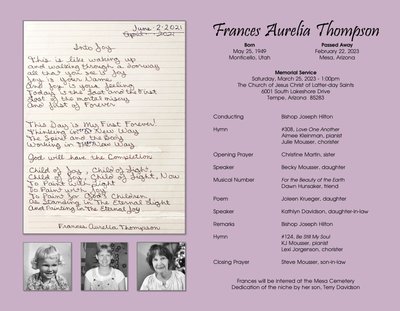 June 2 2021
April 2021
Into Joy
This is like waking up
and walking through a doorway
all that you see is Joy
Joy is your Name,
And Joy is your feeling
Today is the Last and the First
Last of the mortal misery
And First of Forever
This Day is My First Forever
Thinking in the New Way
The Spirit and the Body
Working in the New Way.
God will have the Completion
Child of Joy, Child of Light,
Child of Joy, Child of Light, Now
To Paint with Light
To Paint with Joy
To Paint for God's Children
As Standing in The Eternal Light
And Painting in The Eternal Joy
Frances Aurelia Thompson
Frances Aurelia Thompson
Born
May 25, 1949
Monticello, Utah
Passed Away
February 22, 2023
Mesa, Arizona
Memorial Service
Saturday, March 25, 2023 - 1:00pm
The Church of Jesus Christ of Latter-day Saints
6001 South Lakeshore Drive
Tempe, Arizona 85283
Conducting Bishop Joseph Hilton
Hymn #308, Love One Another
Aimee Kleinman, pianist
Julie Mousser, chorister
Opening Prayer Christine Martin, sister
Speaker Becky Mousser, daughter
Musical Number For the Beauty of the Earth
Dawn Hunsaker, friend
Poem Joleen Krueger, daughter
Speaker Kathlyn Davidson, daughter-in-law
Remarks Bishop Joseph Hilton
Hymn #124, Be Still My Soul
KJ Mouser, pianist
Lexi Jorgenson, chorister
Closing Prayer Steve Mousser, son-in-law
Frances will be interred at the Mesa Cemetery
Dedication of the niche by her son, Terry Davidson